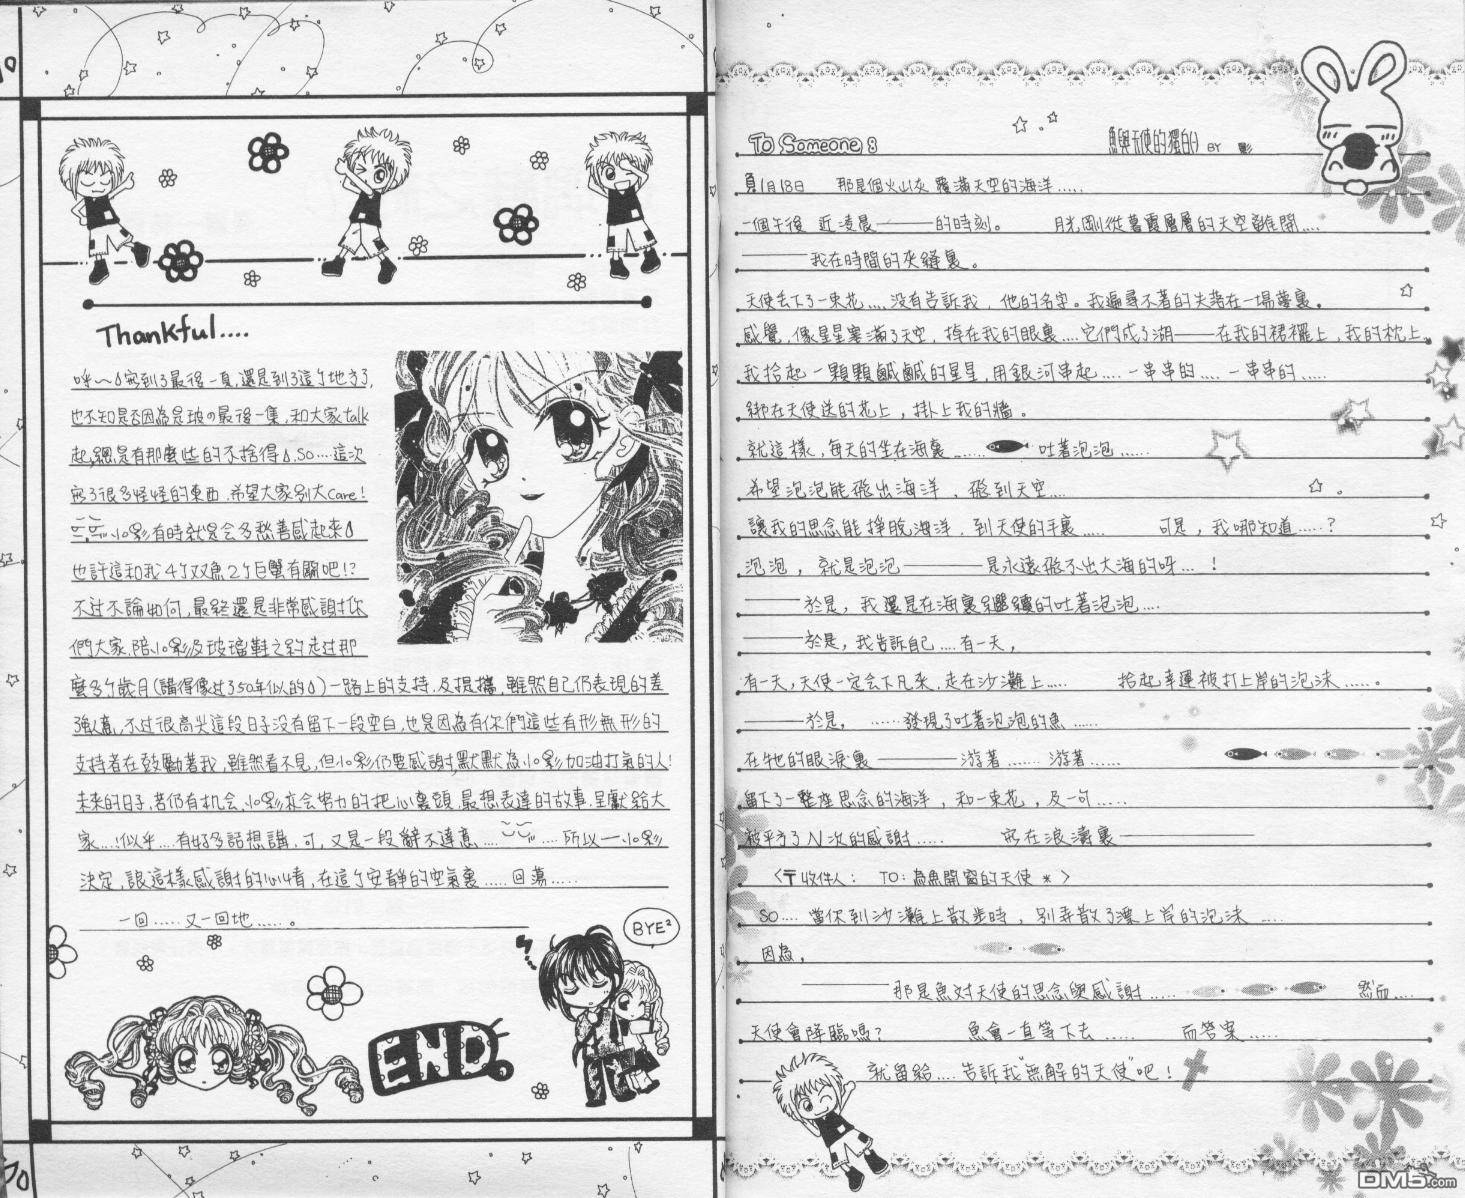 Thankful....
呼~~寫到了最後一頁,還是到了這个地方了,
也不知是否因為是玻の最後一集,和大家talk
起,總是有那麼些的不捨得.SO....這次
寫了很多怪怪的東西.希望大家別太Care!
小影有時就是会多愁善感起來
也許這和我4个双魚2个巨蟹有關吧!?
不过不論如何,最終還是非常感謝你
們大家.陪小影及玻璃鞋之約走过那
麼多个歲月(講得像过了350年似的)一路上的支持.及提攜.雖然自己仍表現的差
強人意,不过很高兴這段日子没有留下一段空白,也是因為有你們這些有形無形的
支持者在鼓勵著我,雖然看不見,但小影仍要感謝,默默為小影加油打氣的人!
未來的日子,若仍有机会,小影亦会努力的把心裏頭,最想表達的故事.呈獻給大
家....!似乎....有好多話想講,可,又是一段辭不達意.... ....所以一小影
決定,讓這樣感謝的心情,在這个安靜的空氣裏.....回蕩.....
一回.....又一回地......。
BYE²
END.
To Someone 8
魚與天使的獨白() BY 影
1月18日 那是個火山灰覆滿天空的海洋.....
一個午後 近凌晨———的時刻。 月光剛從暮霞層層的天空離開....
———我在時間的夾縫裏。
天使丟下了一束花....没有告訴我,他的名字。我遍尋不著的失落在一場夢裏。
感覺,像星星塞滿了天空,掉在我的眼裏....它們成了湖——在我的裙襬上,我的枕上.
我拾起一顆顆鹹鹹的星星,用銀河串起.....一串串的.....一串串的......
綁在天使送的花上,掛上我的牆。
就這樣,每天的坐在海裏...... 吐著泡泡......
希望泡泡能飛出海洋,飛到天空....
讓我的思念能掙脫海洋,到天使的手裏..... 可是,我哪知道.....?
泡泡,就是泡泡———是永遠飛不出大海的呀...!
———於是,我還是在海裏繼續的吐著泡泡....
———於是,我告訴自己....有一天,
有一天,天使一定会下凡來,走在沙灘上..... 拾起幸運被打上岸的泡沫......。
———於是, ......發現了吐著泡泡的魚.....
在牠的眼淚裏————游著.......游著......
留下了一整座思念的海洋,和一束花,及一句.....
被平方了N次的感謝..... 寫在浪濤裏———————
〈〒收件人: TO:為魚開窗的天使 *〉
SO....當你到沙灘上散步時,別弄散了漂上岸的泡沫.....
因為,
————那是魚对天使的思念與感謝..... 然而....
天使會降臨嗎? 魚會一直等下去...... 而答案.....
就留給....告訴我"無解的天使"吧!
DM5.com